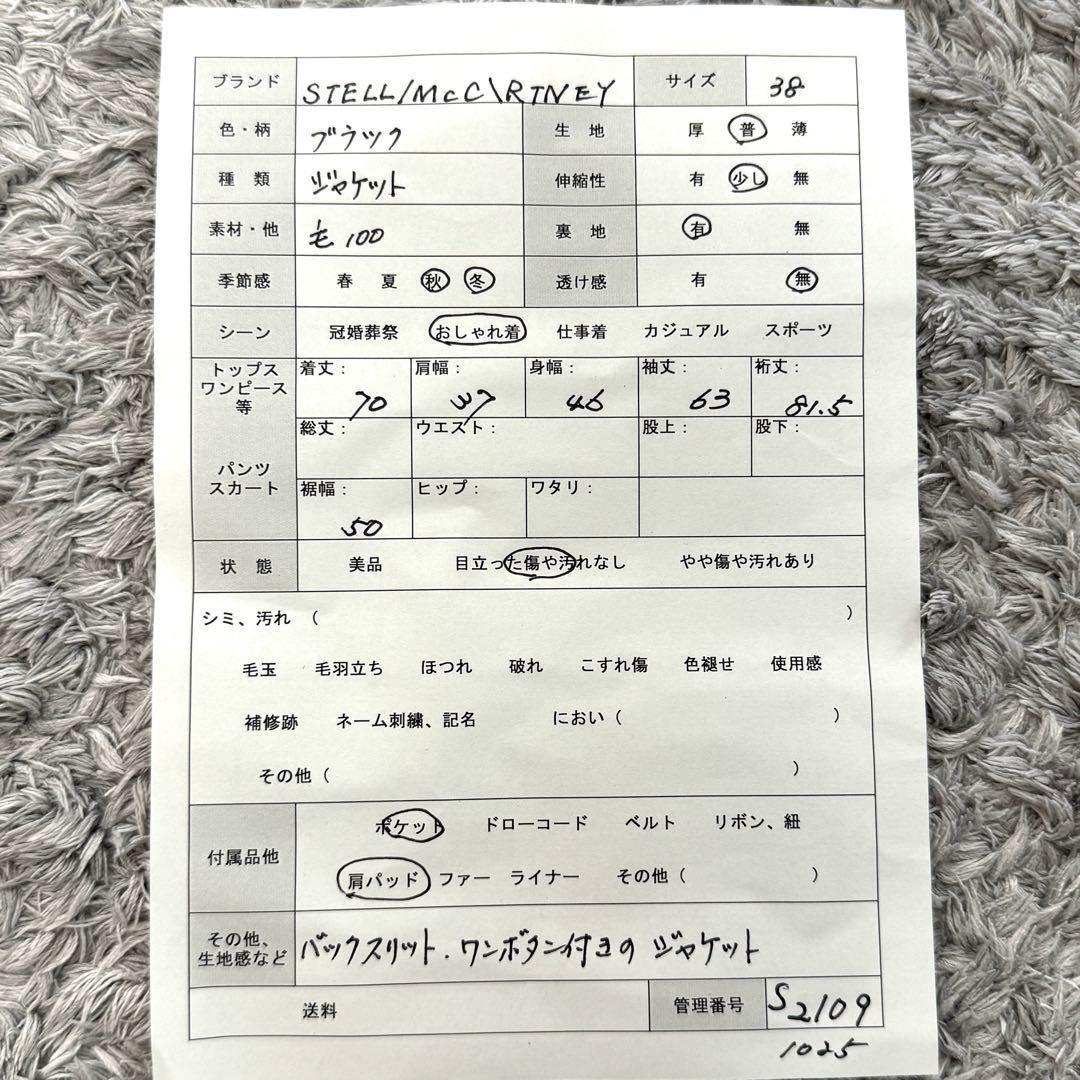 ブランド STELL/McC\RTNEY サイズ 38
色・柄 ブラック 生 地 厚 普 薄
種 類 ジャケット 伸縮性 有 少し 無
素材・他 毛 100 裏 地 有 無
季節感 春 夏 秋 冬 透け感 有 無
シーン 冠婚葬祭 おしゃれ着 仕事着 カジュアル スポーツ
トップス
ワンピース
等
着丈： 肩幅： 身幅： 袖丈： 裄丈：
70 37 46 63 81.5
パンツ
スカート
総丈： ウエスト： 股上： 股下：
裾幅： ヒップ： ワタリ：
50
状 態 美品 目立った傷や汚れなし やや傷や汚れあり
シミ、汚れ （ ）
毛玉 毛羽立ち ほつれ 破れ こすれ傷 色褪せ 使用感
補修跡 ネーム刺繍、記名 におい（ ）
その他（ ）
付属品他
ポケット ドローコード ベルト リボン、紐
肩パッド ファー ライナー その他（ ）
その他、
生地感など
バックスリット．ワンボタン付きの ジャケット
送料 管理番号 S2109
1025